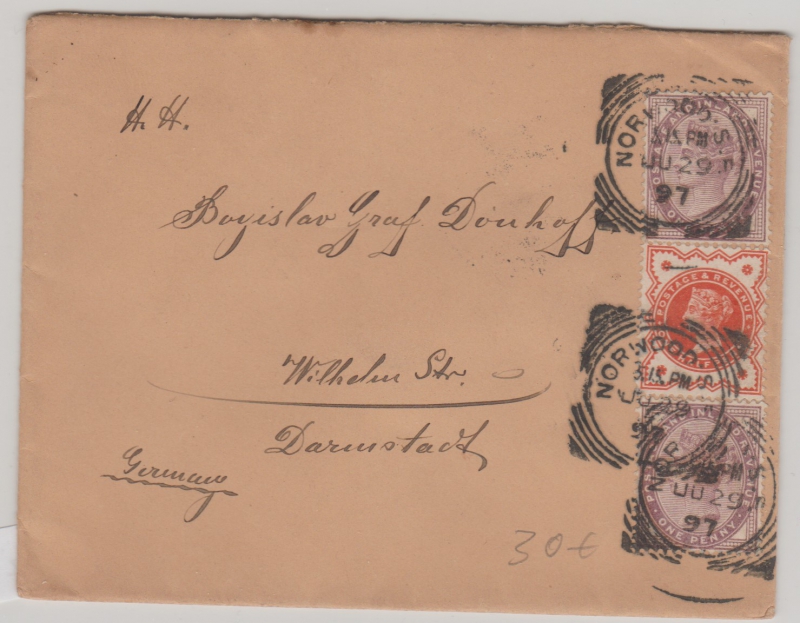 H. H.
Bogislav Graf Dönhoff
Wilhelm Str.
Darmstadt
Germany
30€
NORWOOD. S
3.15 PM
JU 29
97
POSTAGE & REVENUE
NORWOOD. S
3.15 PM
JU 29
97
PM
JU 29
97
ONE PENNY